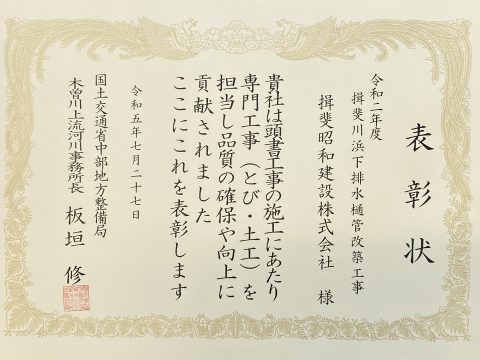 表彰状
令和二年度
揖斐川浜下排水樋管改築工事
揖斐昭和建設株式会社 様
貴社は頭書工事の施工にあたり
専門工事（とび・土工）を
担当し品質の確保や向上に
貢献されました
ここにこれを表彰します
令和五年七月二十七日
国土交通省中部地方整備局
木曽川上流河川事務所長 板垣 修